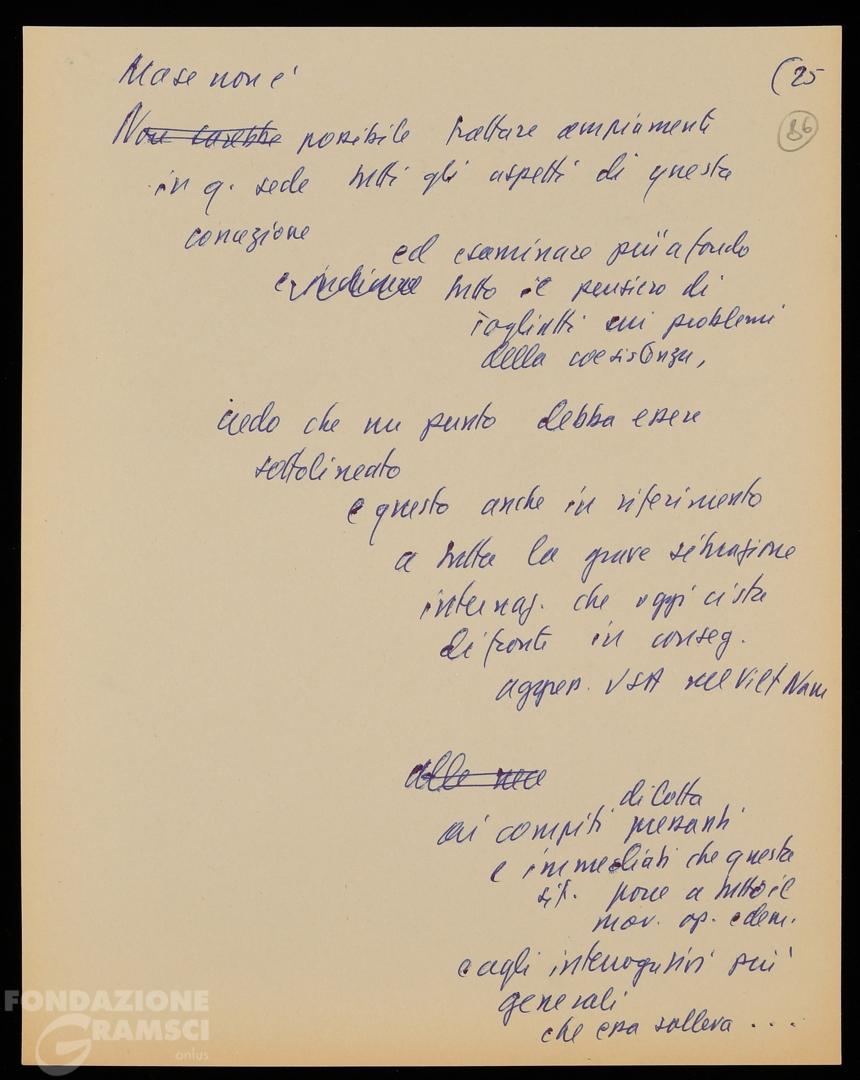 Ma se non è
(25
86
Non sarebbe possibile trattare ampiamente
in q. sede tutti gli aspetti di questa
concezione
ed esaminare più a fondo
tutto il pensiero di
Togliatti sui problemi
della coesistenza,
credo che un punto debba essere
sottolineato
e questo anche in riferimento
a tutta la grave situazione
internaz. che oggi ci sta
di fronte in conseg.
aggress. USA nel Viet Nam
alle
di lotta
ai compiti pressanti
e immediati che questa
sit. pone a tutto il
mov. op. e dem.
e agli interrogativi più
generali
che essa solleva ...
FONDAZIONE
GRAMSCI
onlus